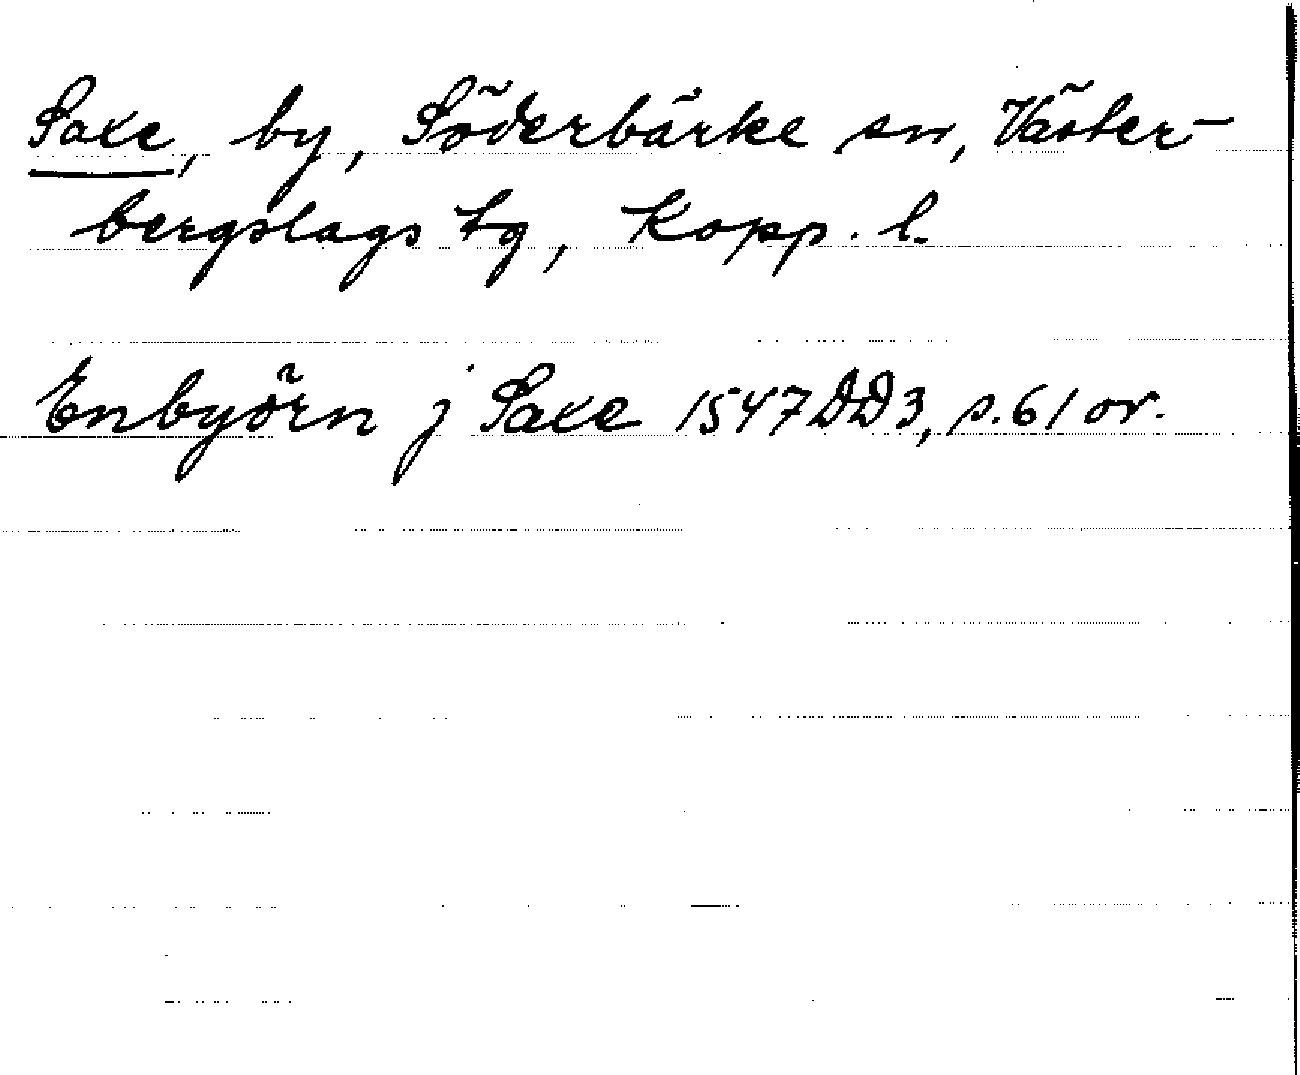 Saxe, by, Söderbärke sn, Väster-
bergslags tg, Kopp. l.
Enbyörn j Saxe 1547 DD3, s. 61 or.